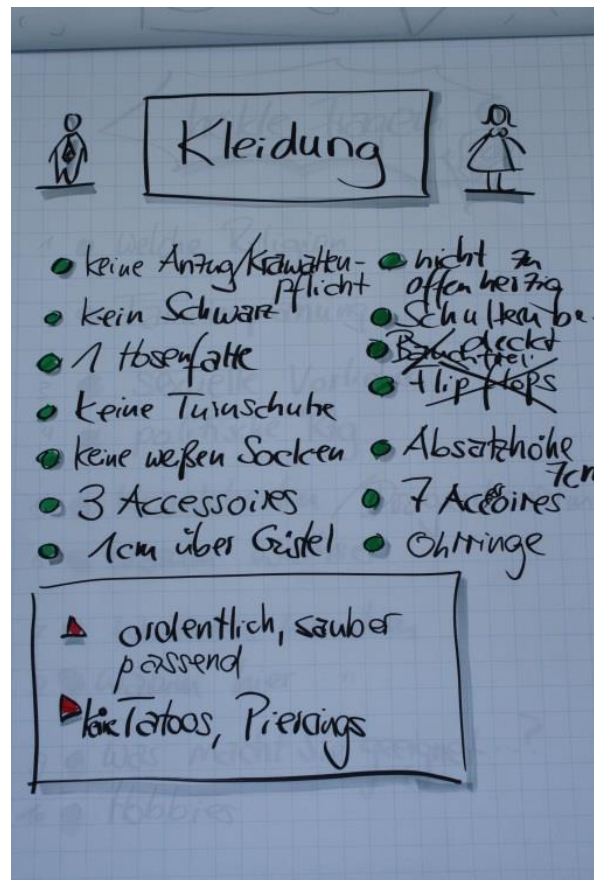 Kleidung
keine Anzug/Krawatten-
pflicht
kein Schwarz
1 Hosenfalte
keine Turnschuhe
keine weßen Socken
3 Accessoires
1cm über Gürtel
nicht zu
offenherzig
Schultern be-
deckt
Bauchfrei
Flip flops
Absatzhöhe
7cm
7 Accoires
Ohrringe
ordentlich, sauber
passend
keine Tatoos, Piercings
welche Religion
sexuelle
politische
Hobbies